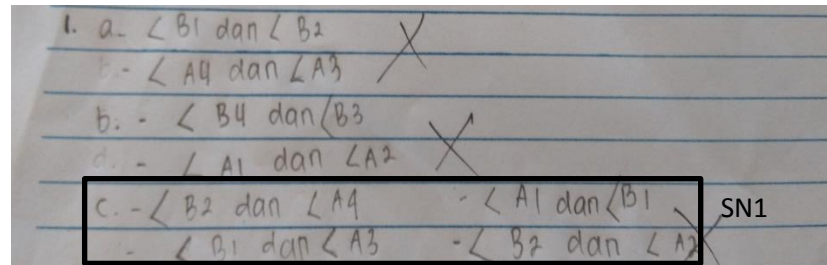 1. a- ∠ B1 dan ∠ B2
- ∠ A4 dan ∠ A3
b. - ∠ B4 dan ∠ B3
d. - ∠ A1 dan ∠ A2
c. - ∠ B2 dan ∠ A4 - ∠ A1 dan ∠ B1 SN1
- ∠ B1 dan ∠ A3 - ∠ B2 dan ∠ A2